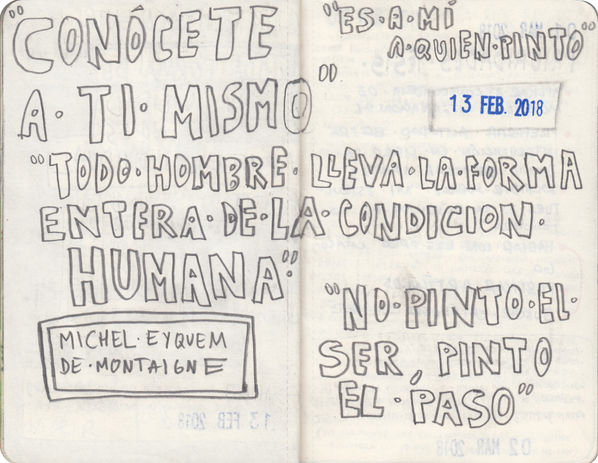 "CONÓCETE
A·TI·MISMO"
"ES·A·MÍ
A·QUIEN·PINTO"
13 FEB. 2018
"TODO·HOMBRE·LLEVA·LA·FORMA
ENTERA·DE·LA·CONDICION·
HUMANA·"
MICHEL·EYQUEM
DE·MONTAIGNE
"NO·PINTO·EL·
SER, PINTO
EL·PASO"
13 FEB 2018
02 MAR 2018